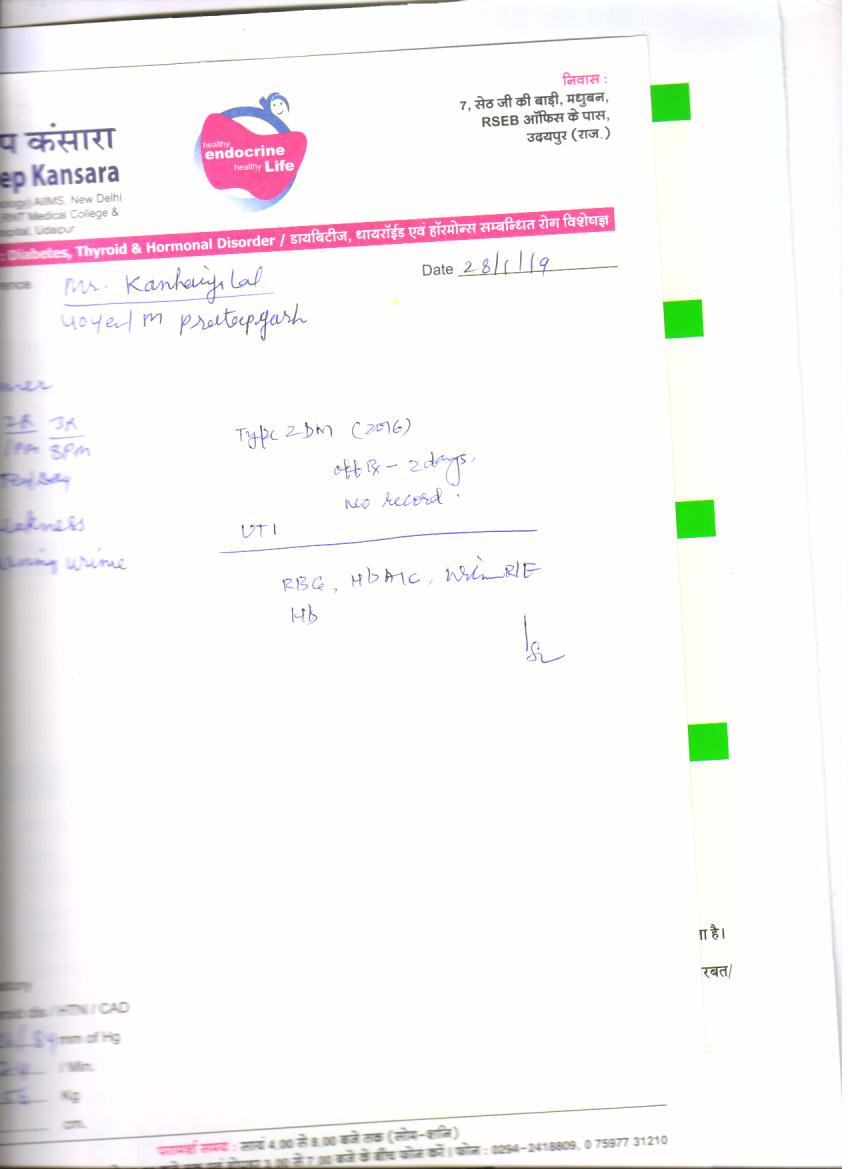 निवास :
7, सेठ जी की बाड़ी, मधुबन,
RSEB ऑफिस के पास,
उदयपुर (राज.)
प कंसारा
ep Kansara
AIIMS, New Delhi
RNT Medical College &
Udaipur
healthy
endocrine
healthy Life
: Diabetes, Thyroid & Hormonal Disorder / डायबिटीज, थायरॉईड एवं हॉरमोन्स सम्बन्धित रोग विशेषज्ञ
Mr. Kanhaiya Lal
Date 28/1/19
40 year/M Pratapgarh
2R 3R
8PM
Type 2 DM (2016)
off Rx - 2 days.
No record.
eakness
UTI
urine
RBG, HbA1C, Urine R/E
Hb
ा है।
रबत/
/ HTN / CAD
mm of Hg
/ Min.
56 Kg
cm.
परामर्श समय : सायं 4.00 से 8.00 बजे तक (सोम-शनि)
3.00 से 7.00 बजे के बीच फोन करें। फोन : 0294-2418809, 0 75977 31210